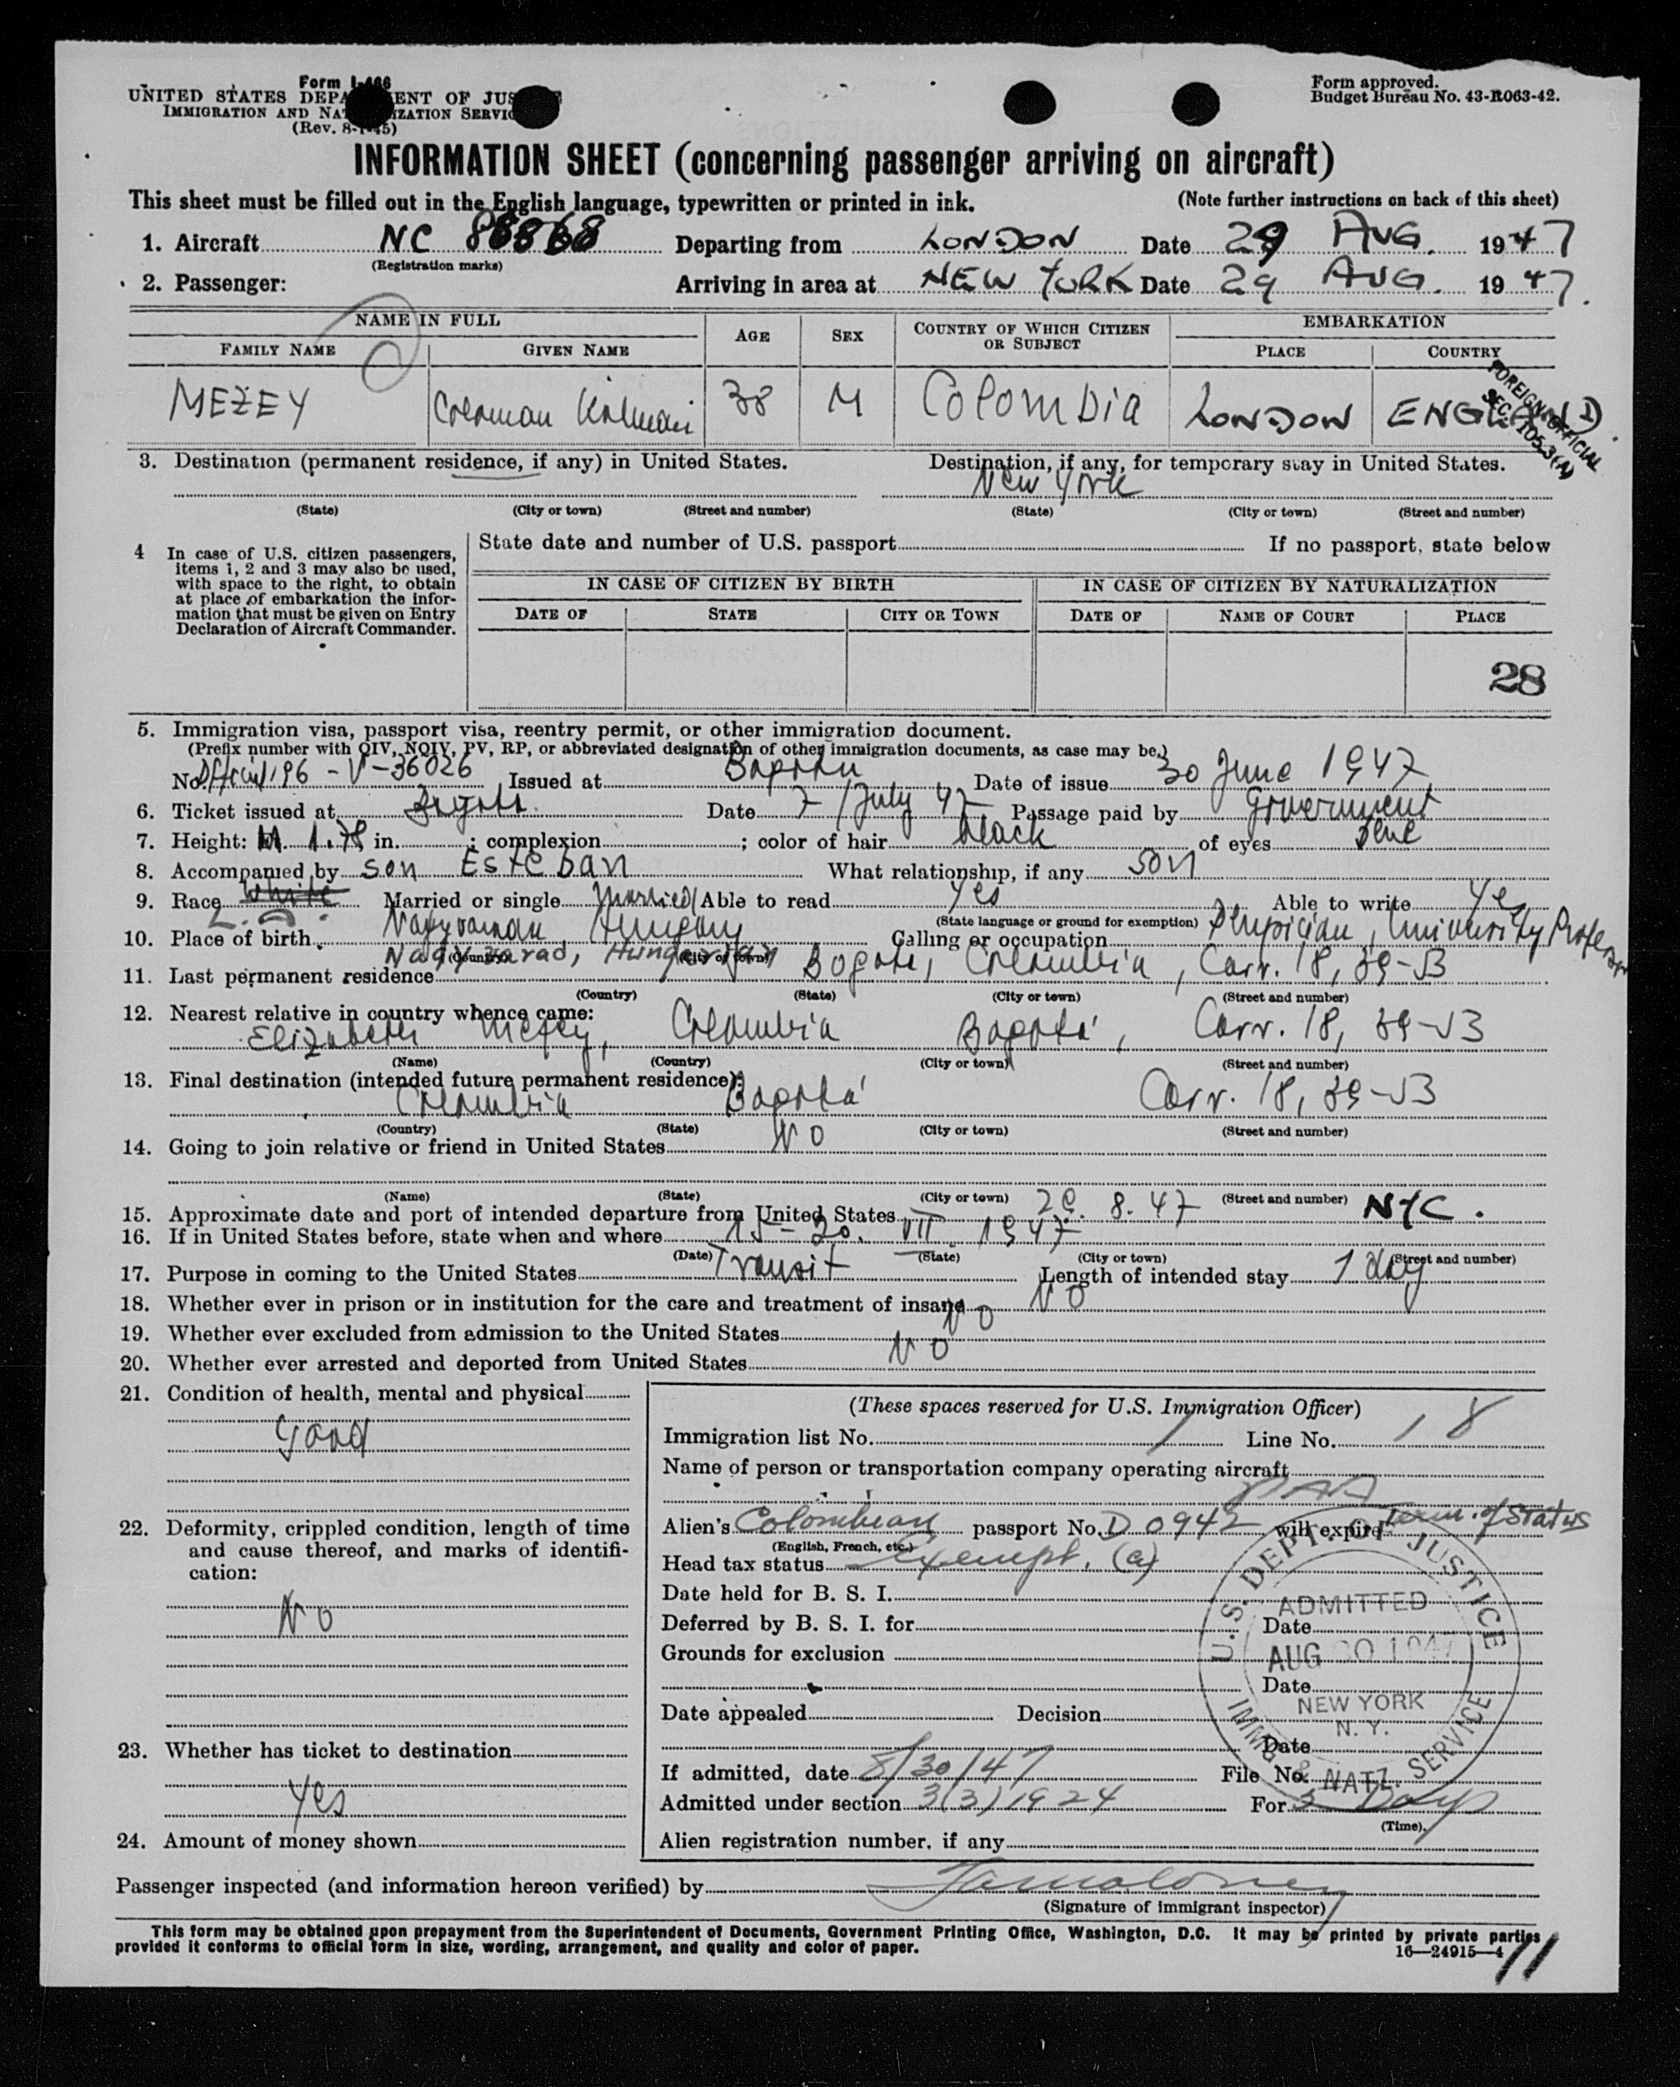 Form I-466
UNITED STATES DEPARTMENT OF JUSTICE
IMMIGRATION AND NATURALIZATION SERVICE
(Rev. 8-1-45)
Form approved.
Budget Bureau No. 43-R063-42.
INFORMATION SHEET (concerning passenger arriving on aircraft)
This sheet must be filled out in the English language, typewritten or printed in ink. (Note further instructions on back of this sheet)
1. Aircraft NC 88868 Departing from LONDON Date 29 AUG. 1947
(Registration marks)
2. Passenger: Arriving in area at NEW YORK Date 29 AUG. 1947.
NAME IN FULL AGE SEX COUNTRY OF WHICH CITIZEN OR SUBJECT EMBARKATION
FAMILY NAME GIVEN NAME PLACE COUNTRY
MEZEY Coloman 38 M Colombia LONDON ENGLAND.
FOREIGN OFFICIAL
SEC. 105.3(A)
3. Destination (permanent residence, if any) in United States. Destination, if any, for temporary stay in United States.
New York
(State) (City or town) (Street and number) (State) (City or town) (Street and number)
4 In case of U.S. citizen passengers, items 1, 2 and 3 may also be used, with space to the right, to obtain at place of embarkation the information that must be given on Entry Declaration of Aircraft Commander.
State date and number of U.S. passport If no passport, state below
IN CASE OF CITIZEN BY BIRTH IN CASE OF CITIZEN BY NATURALIZATION
DATE OF STATE CITY OR TOWN DATE OF NAME OF COURT PLACE
28
5. Immigration visa, passport visa, reentry permit, or other immigration document.
(Prefix number with QIV, NQIV, PV, RP, or abbreviated designation of other immigration documents, as case may be.)
No. Official 196 - V - 36026 Issued at Bogota Date of issue 30 June 1947
6. Ticket issued at Bogota Date 7 / July 47 Passage paid by Government
7. Height: M. 1.78 in. ; complexion ; color of hair black of eyes blue
8. Accompanied by son Esteban What relationship, if any son
9. Race White Married or single Married Able to read Yes Able to write Yes
(State language or ground for exemption)
10. Place of birth Nagyvarad, Hungary Calling or occupation Physician, University Professor
Nagyvarad, Hungarian
(Country) (City or town)
11. Last permanent residence Bogota, Colombia, Carr. 18, 39-53
(Country) (State) (City or town) (Street and number)
12. Nearest relative in country whence came:
Elizabeth Mezey, Colombia Bogotá, Carr. 18, 39-53
(Name) (Country) (City or town) (Street and number)
13. Final destination (intended future permanent residence):
Colombia Bogotá Carr. 18, 39-53
(Country) (State) (City or town) (Street and number)
14. Going to join relative or friend in United States No
(Name) (State) (City or town) (Street and number)
15. Approximate date and port of intended departure from United States 29. 8. 47 NYC.
16. If in United States before, state when and where 15 - 20. VII. 1947
(Date) (State) (City or town) (Street and number)
17. Purpose in coming to the United States Transit Length of intended stay 1 day
18. Whether ever in prison or in institution for the care and treatment of insane No
19. Whether ever excluded from admission to the United States No
20. Whether ever arrested and deported from United States No
21. Condition of health, mental and physical
Good
22. Deformity, crippled condition, length of time and cause thereof, and marks of identification:
No
23. Whether has ticket to destination
Yes
24. Amount of money shown
(These spaces reserved for U.S. Immigration Officer)
Immigration list No. 1 Line No. 18
Name of person or transportation company operating aircraft
PAA
Alien's Colombian passport No. D 0942 will expire Term. of Status
(English, French, etc.)
Head tax status Exempt. (a)
Date held for B. S. I.
Deferred by B. S. I. for Date
Grounds for exclusion
Date
Date appealed Decision
Date
U.S. DEPT. OF JUSTICE
ADMITTED
AUG 30 1947
NEW YORK
N. Y.
IMMG. & NATZ. SERVICE
If admitted, date 8/30/47 File No.
Admitted under section 3(3) 1924 For 3 Days
(Time)
Alien registration number, if any
Passenger inspected (and information hereon verified) by
(Signature of immigrant inspector)
This form may be obtained upon prepayment from the Superintendent of Documents, Government Printing Office, Washington, D.C. It may be printed by private parties
provided it conforms to official form in size, wording, arrangement, and quality and color of paper. 16—24915—4
11